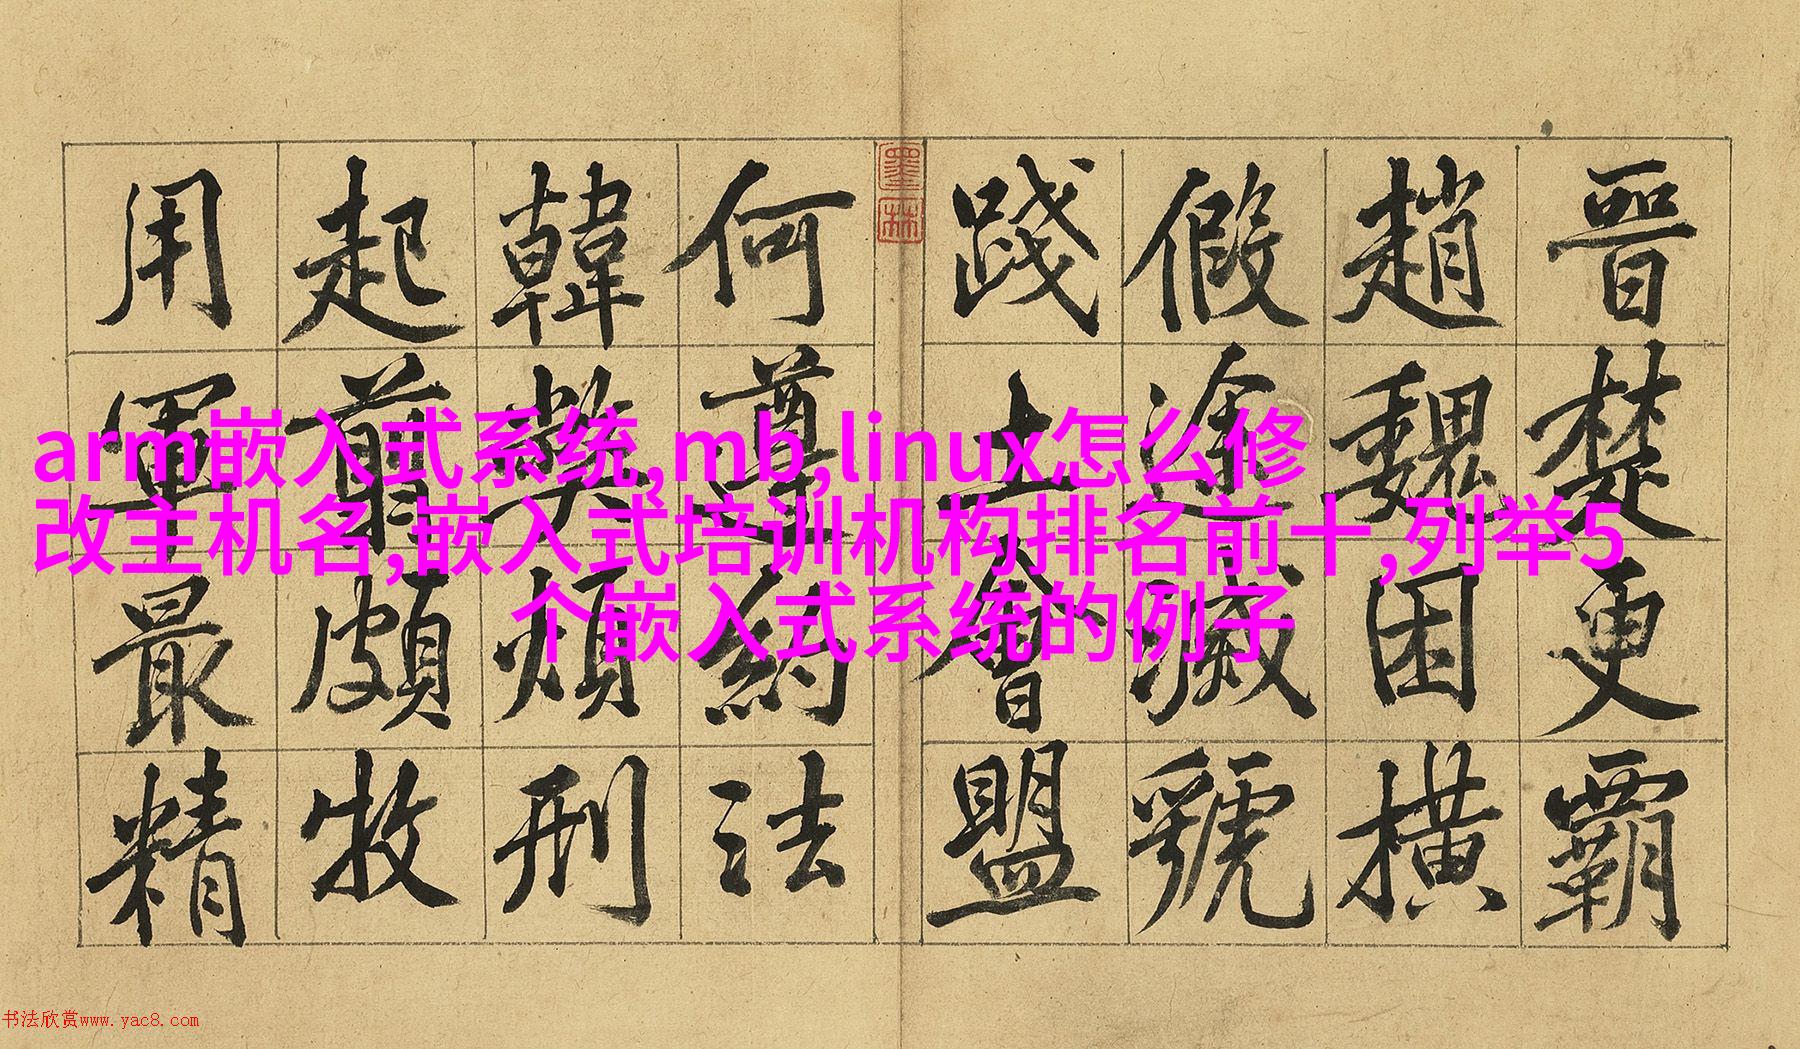 晉楚更霸
趙魏困橫
假途滅虢
踐土會盟
何遵約法
韓弊煩刑
起翦頗牧
用軍最精
墨林
arm嵌入式系统,mb,linux怎么修
改主机名,嵌入式培训机构排名前十,列举5
个嵌入式系统的例子
书法欣赏www.yac8.com